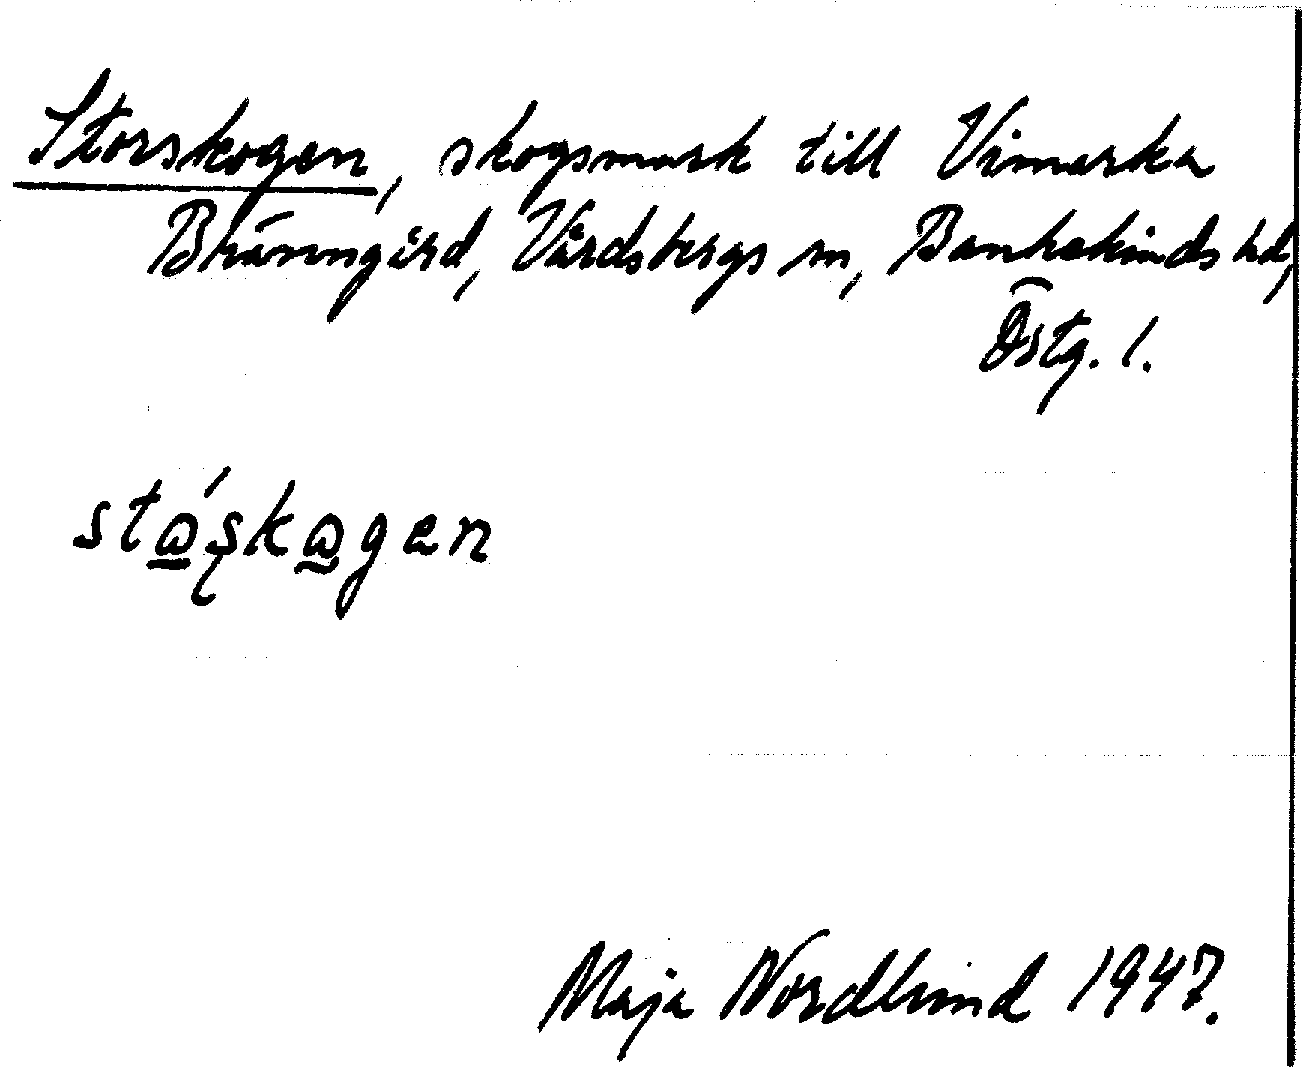 Storskogen, skogsmark till Vimarka
Bränngärd, Vårdsbergs sn, Bankekinds hd,
Östg. l.
stώ̲ʂkω̲gen
Maja Nordlund 1947.